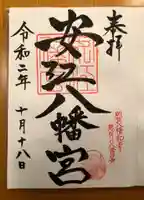 奉拝
安江八幡宮
令和二年
十月十八日